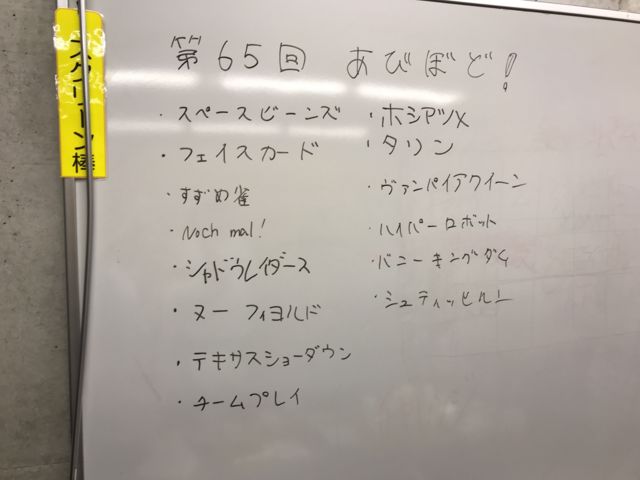 スクリーン棒
第65回 あびぼど!
・スペースビーンズ
・フェイスカード
・すずめ雀
・Noch mal!
・シャドウレイダース
・ヌーフィヨルド
・テキサスショーダウン
・チームプレイ
・ホシアツメ
・タリン
・ヴァンパイアクイーン
・ハイパーロボット
・バニーキングダム
・シュティッヒルン